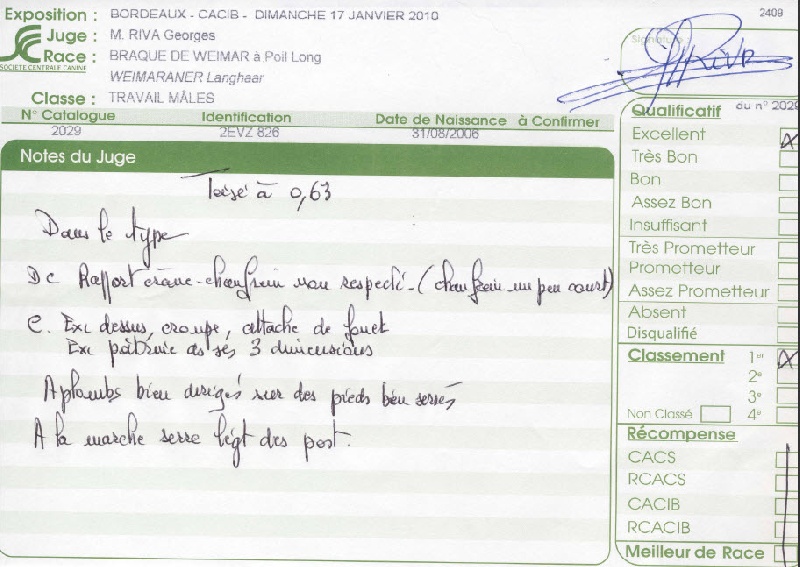 Exposition : BORDEAUX - CACIB - DIMANCHE 17 JANVIER 2010
2409
Juge : M. RIVA Georges
Race : BRAQUE DE WEIMAR à Poil Long
SOCIÉTÉ CENTRALE CANINE
WEIMARANER Langhaar
Classe : TRAVAIL MÂLES
Signature :
RIVA
N° Catalogue Identification Date de Naissance à Confirmer
2029 2EVZ 826 31/08/2006
Notes du Juge
Toisé à 0,63
Dans le type
Rapport crâne-chanfrein non respecté - (chanfrein un peu court)
C. Exc dessus, croupe, attache de fouet
Exc poitrine ds ses 3 dimensions
Aplombs bien dirigés sur des pieds bien serrés
A la marche serre légt des post.
Qualificatif du n° 2029
Excellent X
Très Bon
Bon
Assez Bon
Insuffisant
Très Prometteur
Prometteur
Assez Prometteur
Absent
Disqualifié
Classement 1er X
2e
3e
Non Classé 4e
Récompense
CACS
RCACS
CACIB
RCACIB
Meilleur de Race